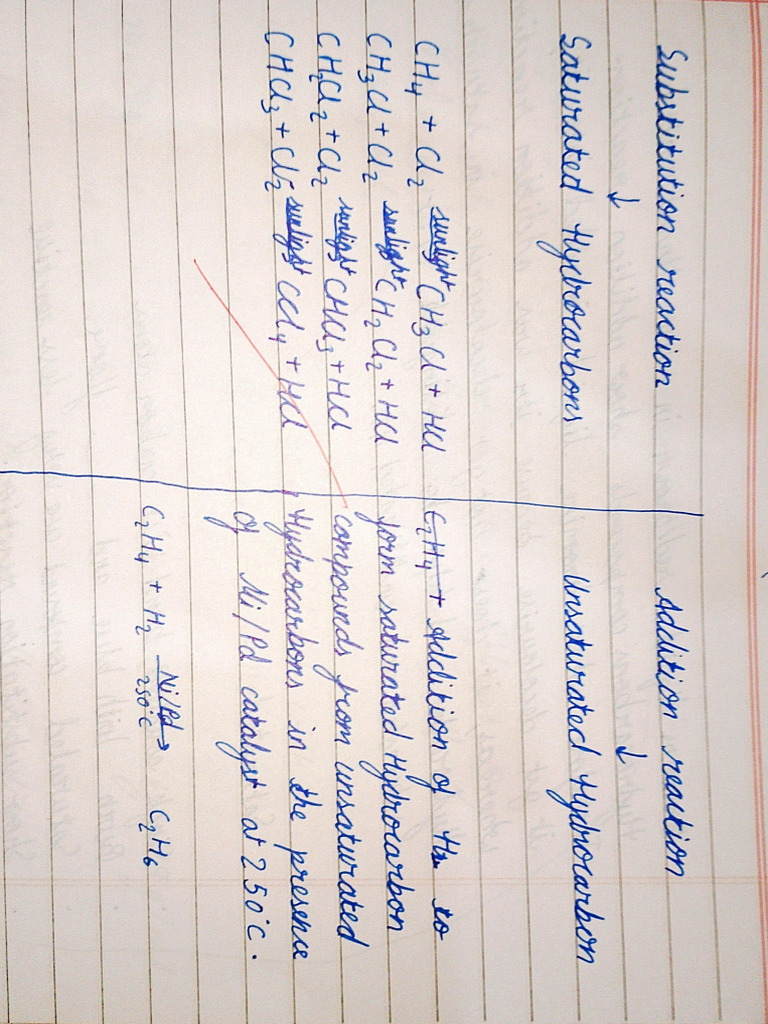 Substitution reaction
↓
Saturated Hydrocarbons
CH4 + Cl2 sunlight CH3Cl + HCl
CH3Cl + Cl2 sunlight CH2Cl2 + HCl
CH2Cl2 + Cl2 sunlight CHCl3 + HCl
CHCl3 + Cl2 sunlight CCl4 + HCl
Addition reaction
↓
Unsaturated Hydrocarbon
C2H4 + Addition of H2 to
form saturated Hydrocarbon
compounds from unsaturated
Hydrocarbons in the presence
of Ni/Pd catalyst at 250°C.
C2H4 + H2 Ni/Pd→ C2H6
250°C